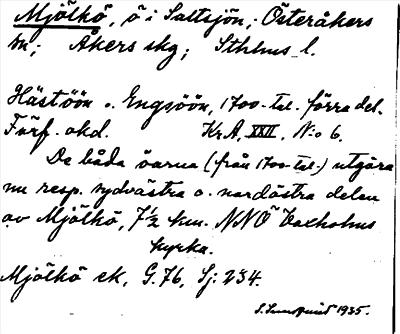 Mjölkö, ö i Saltsjön, Österåkers
sn; Åkers skg; Sthlms l.
Hästöön o. Engsöön, 1700-tal. förra del.
Förf. okd. Kr.A. XXII, N:o 6.
De båda öarna (från 1700-tal.) utgöra
nu resp. sydvästra o. nordöstra delen
av Mjölkö, 7½ km. NNÖ Vaxholms
kyrka.
Mjölkö ek, G.76, Sj: 234.
1935.